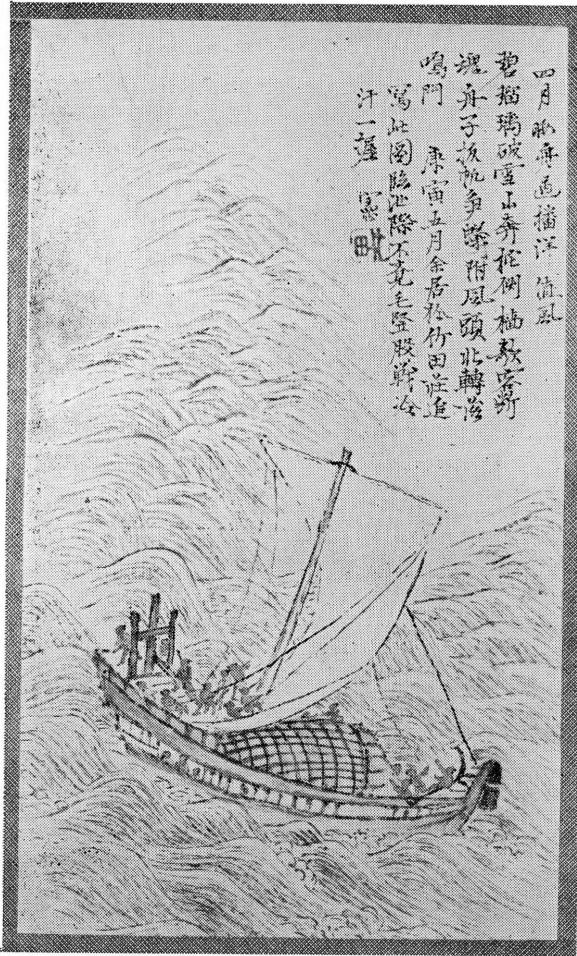 四月晦舟過播洋値風
碧瑠璃破雪山奔柁側舳欹客断
魂舟子扳帆争際附風頭北轉落
鳴門 庚寅五月余居於竹田荘追
寫此圖臨池際不覚毛竪股戦冷
汗一握 憲